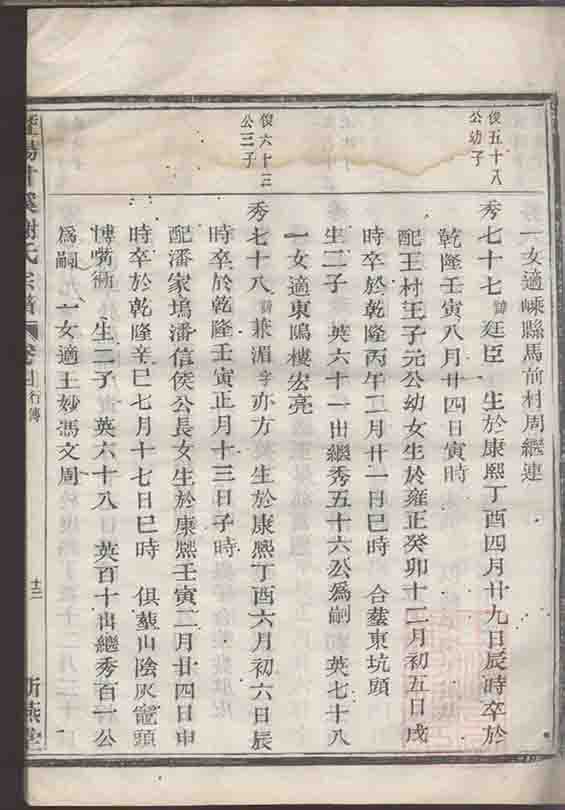 一女適嵊縣馬前村周繼連
俊五十八
公幼子
秀七十七諱廷臣 生於康熙丁酉四月廿九日辰時卒於
乾隆壬寅八月廿四日寅時
配王村王子元公幼女生於雍正癸卯十二月初五日戌
時卒於乾隆丙午二月廿一日巳時 合塟東坑頭
生二子 英六十一出繼秀五十六公爲嗣 英七十八
一女適東鴟樓宏亮
俊六十三
公三子
秀七十八諱兼湄字亦方 生於康熙丁酉六月初六日辰
時卒於乾隆壬寅正月十三日子時
配潘家塢潘信侯公長女生於康熙壬寅二月廿四日申
時卒於乾隆辛巳七月十七日巳時 俱塟山陰灰竈頭
生二子 英六十八 英百十出繼秀百一公
爲嗣 一女適王妙馮文周
謝氏宗譜 行傳 十二